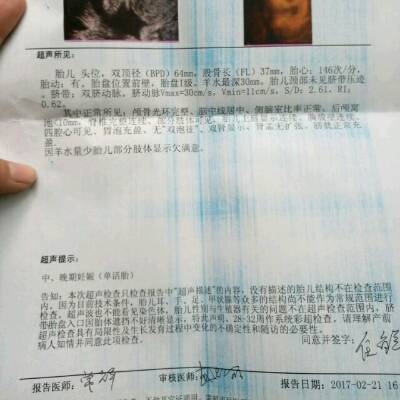 超声所见:
胎儿 头位, 双顶径(BPD)64mm, 股骨长(FL)37mm, 胎心: 146次/分,
胎动: 有, 胎盘位置前壁, 胎盘I级, 羊水最深30mm, 胎儿颈部未见脐带压迹
, 脐带: 双脐动脉, 脐动脉Vmax=30cm/s, Vmin=11cm/s, S/D: 2.61, RI:
0.62。
其中正常所见: 颅骨光环完整, 脑中线居中, 侧脑室比率正常, 后颅窝
池<10mm, 脊椎连续, 部分肢体可见, 胎儿上唇显示连续, 胸腹壁连续,
四腔心可见, 胃泡充盈, 无"双泡征", 双肾显示, 肾盂无扩张, 膀胱正常充
盈。
因羊水量少胎儿部分肢体显示欠满意。
超声提示:
中、晚期妊娠(单活胎)
告知: 本次超声检查只检查报告中"超声描述"的内容, 没有描述的胎儿结构不在检查范围
内, 因为目前技术条件, 胎儿耳、手、足、甲状腺等众多的结构尚不能作为常规范围进行
检查, 超声波也不能看见染色体, 胎儿性别与生殖器有关的问题不在超声检查范围内, 脐
带胎盘入口因胎体遮挡不好清晰显示, 特此声明, 28-32周作系统彩超检查, 请理解产前
超声检查具有局限性及生长发育过程中变化的不确定性和随访的必要性。
病人知情并同意此项检查。 同意并签字:
报告医师: 审核医师: 报告日期: 2017-02-21 16